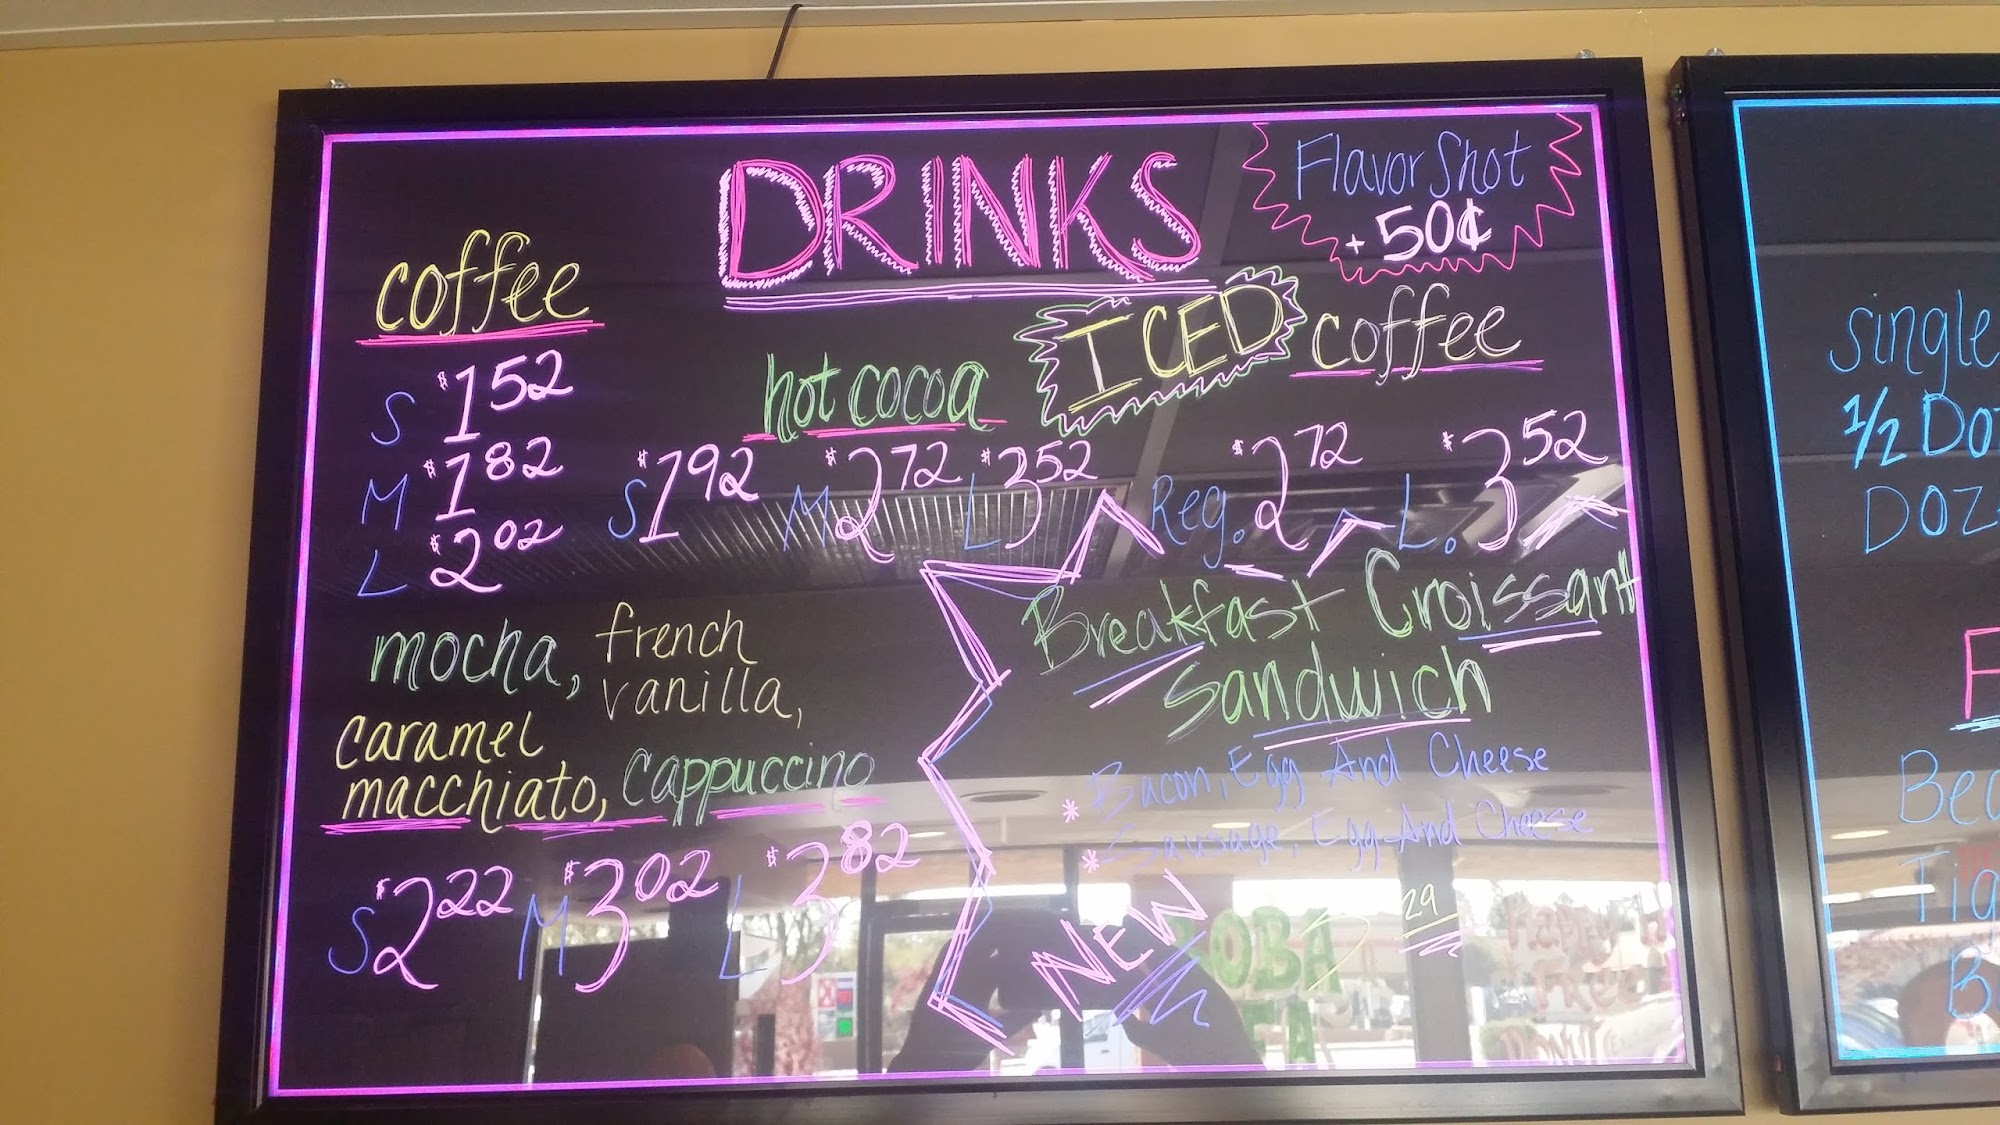 DRINKS
Flavor Shot
+ 50¢
coffee
S $1 52
M $1 82
L $2 02
hot cocoa
S $1 92 M $2 72 L $3 52
ICED coffee
Reg. $2 72 L. $3 52
mocha, french
vanilla,
caramel
macchiato, cappuccino
S $2 22 M $3 02 L $3 82
Breakfast Croissant
Sandwich
* Bacon, Egg And Cheese
* Sausage, Egg And Cheese
NEW
3 29
BOBA
single
1/2 Doz
DOZ